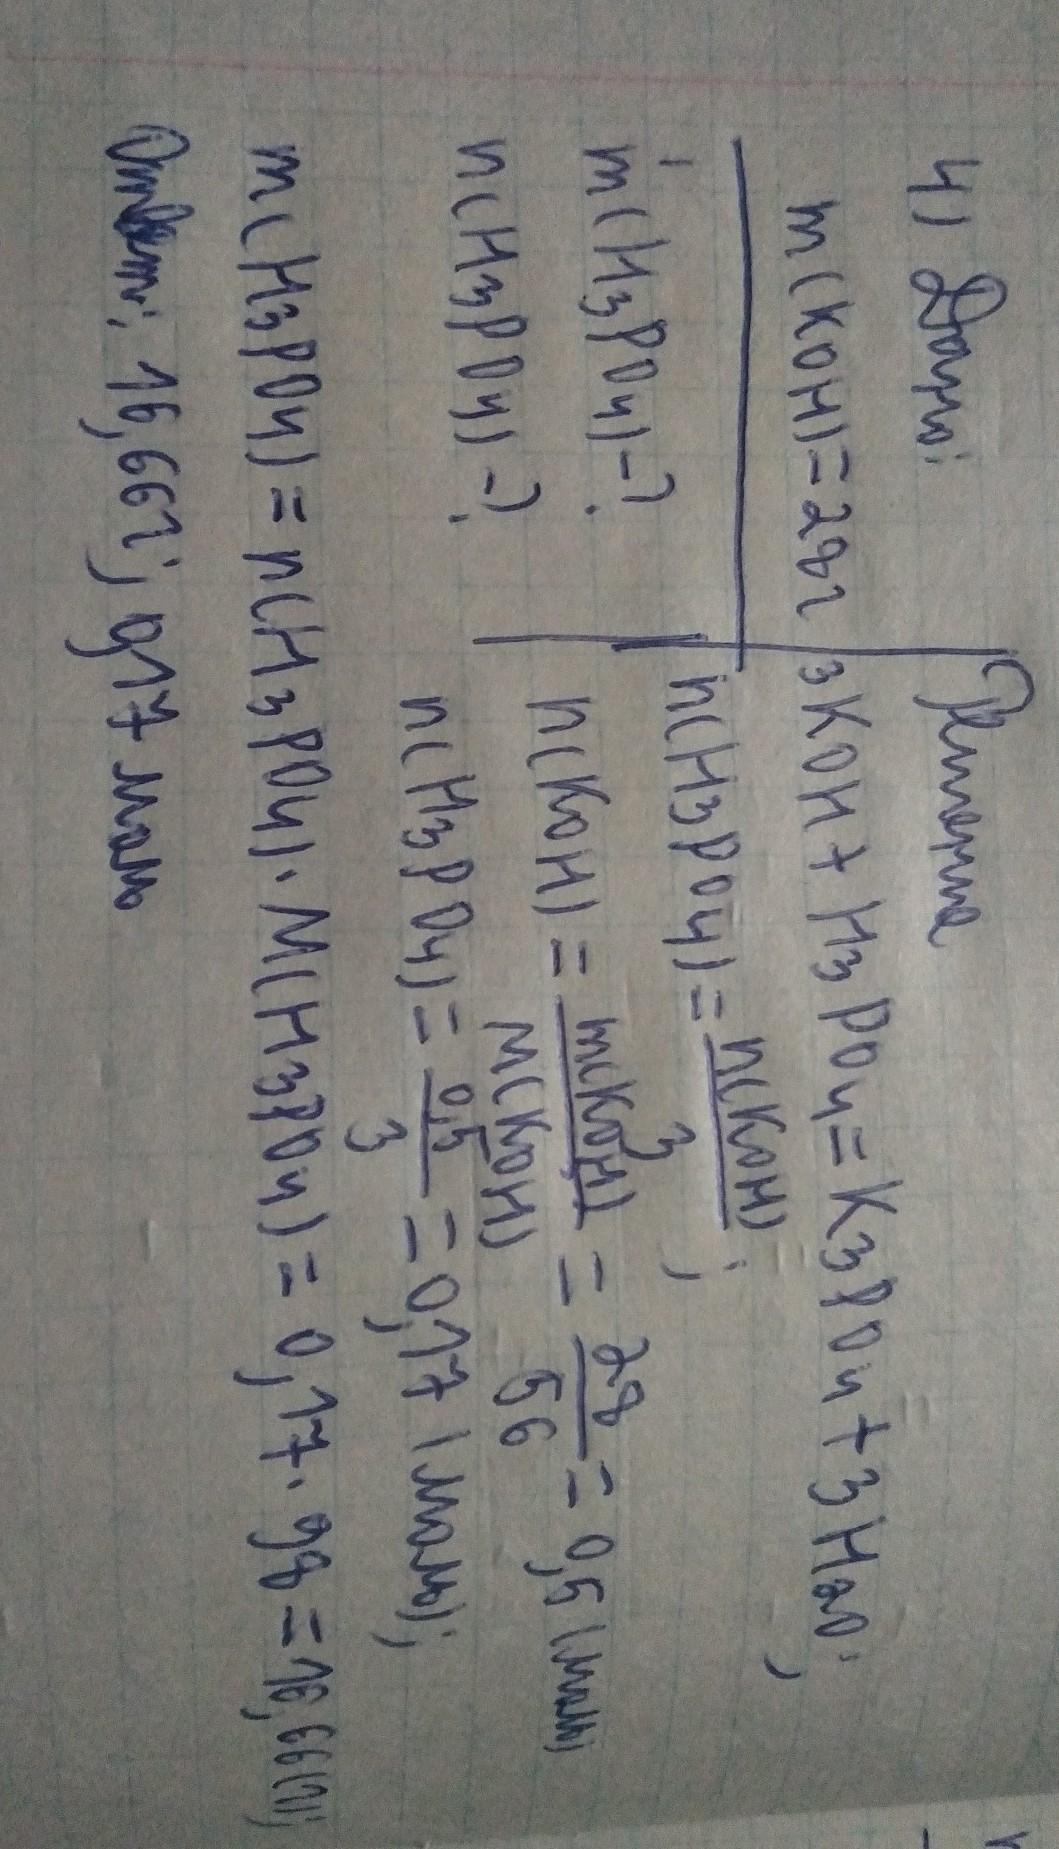 4) Дано:
m(KOH)=28г
m(H3PO4)-?
n(H3PO4)-?
Решение
3KOH+H3PO4=K3PO4+3H2O;
n(H3PO4)=n(KOH)/3;
n(KOH)=m(KOH)/M(KOH)=28/56=0,5(моль)
n(H3PO4)=0,5/3=0,17(моль);
m(H3PO4)=n(H3PO4)·M(H3PO4)=0,17·98=16,66(г);
Ответ: 16,66г; 0,17 моль